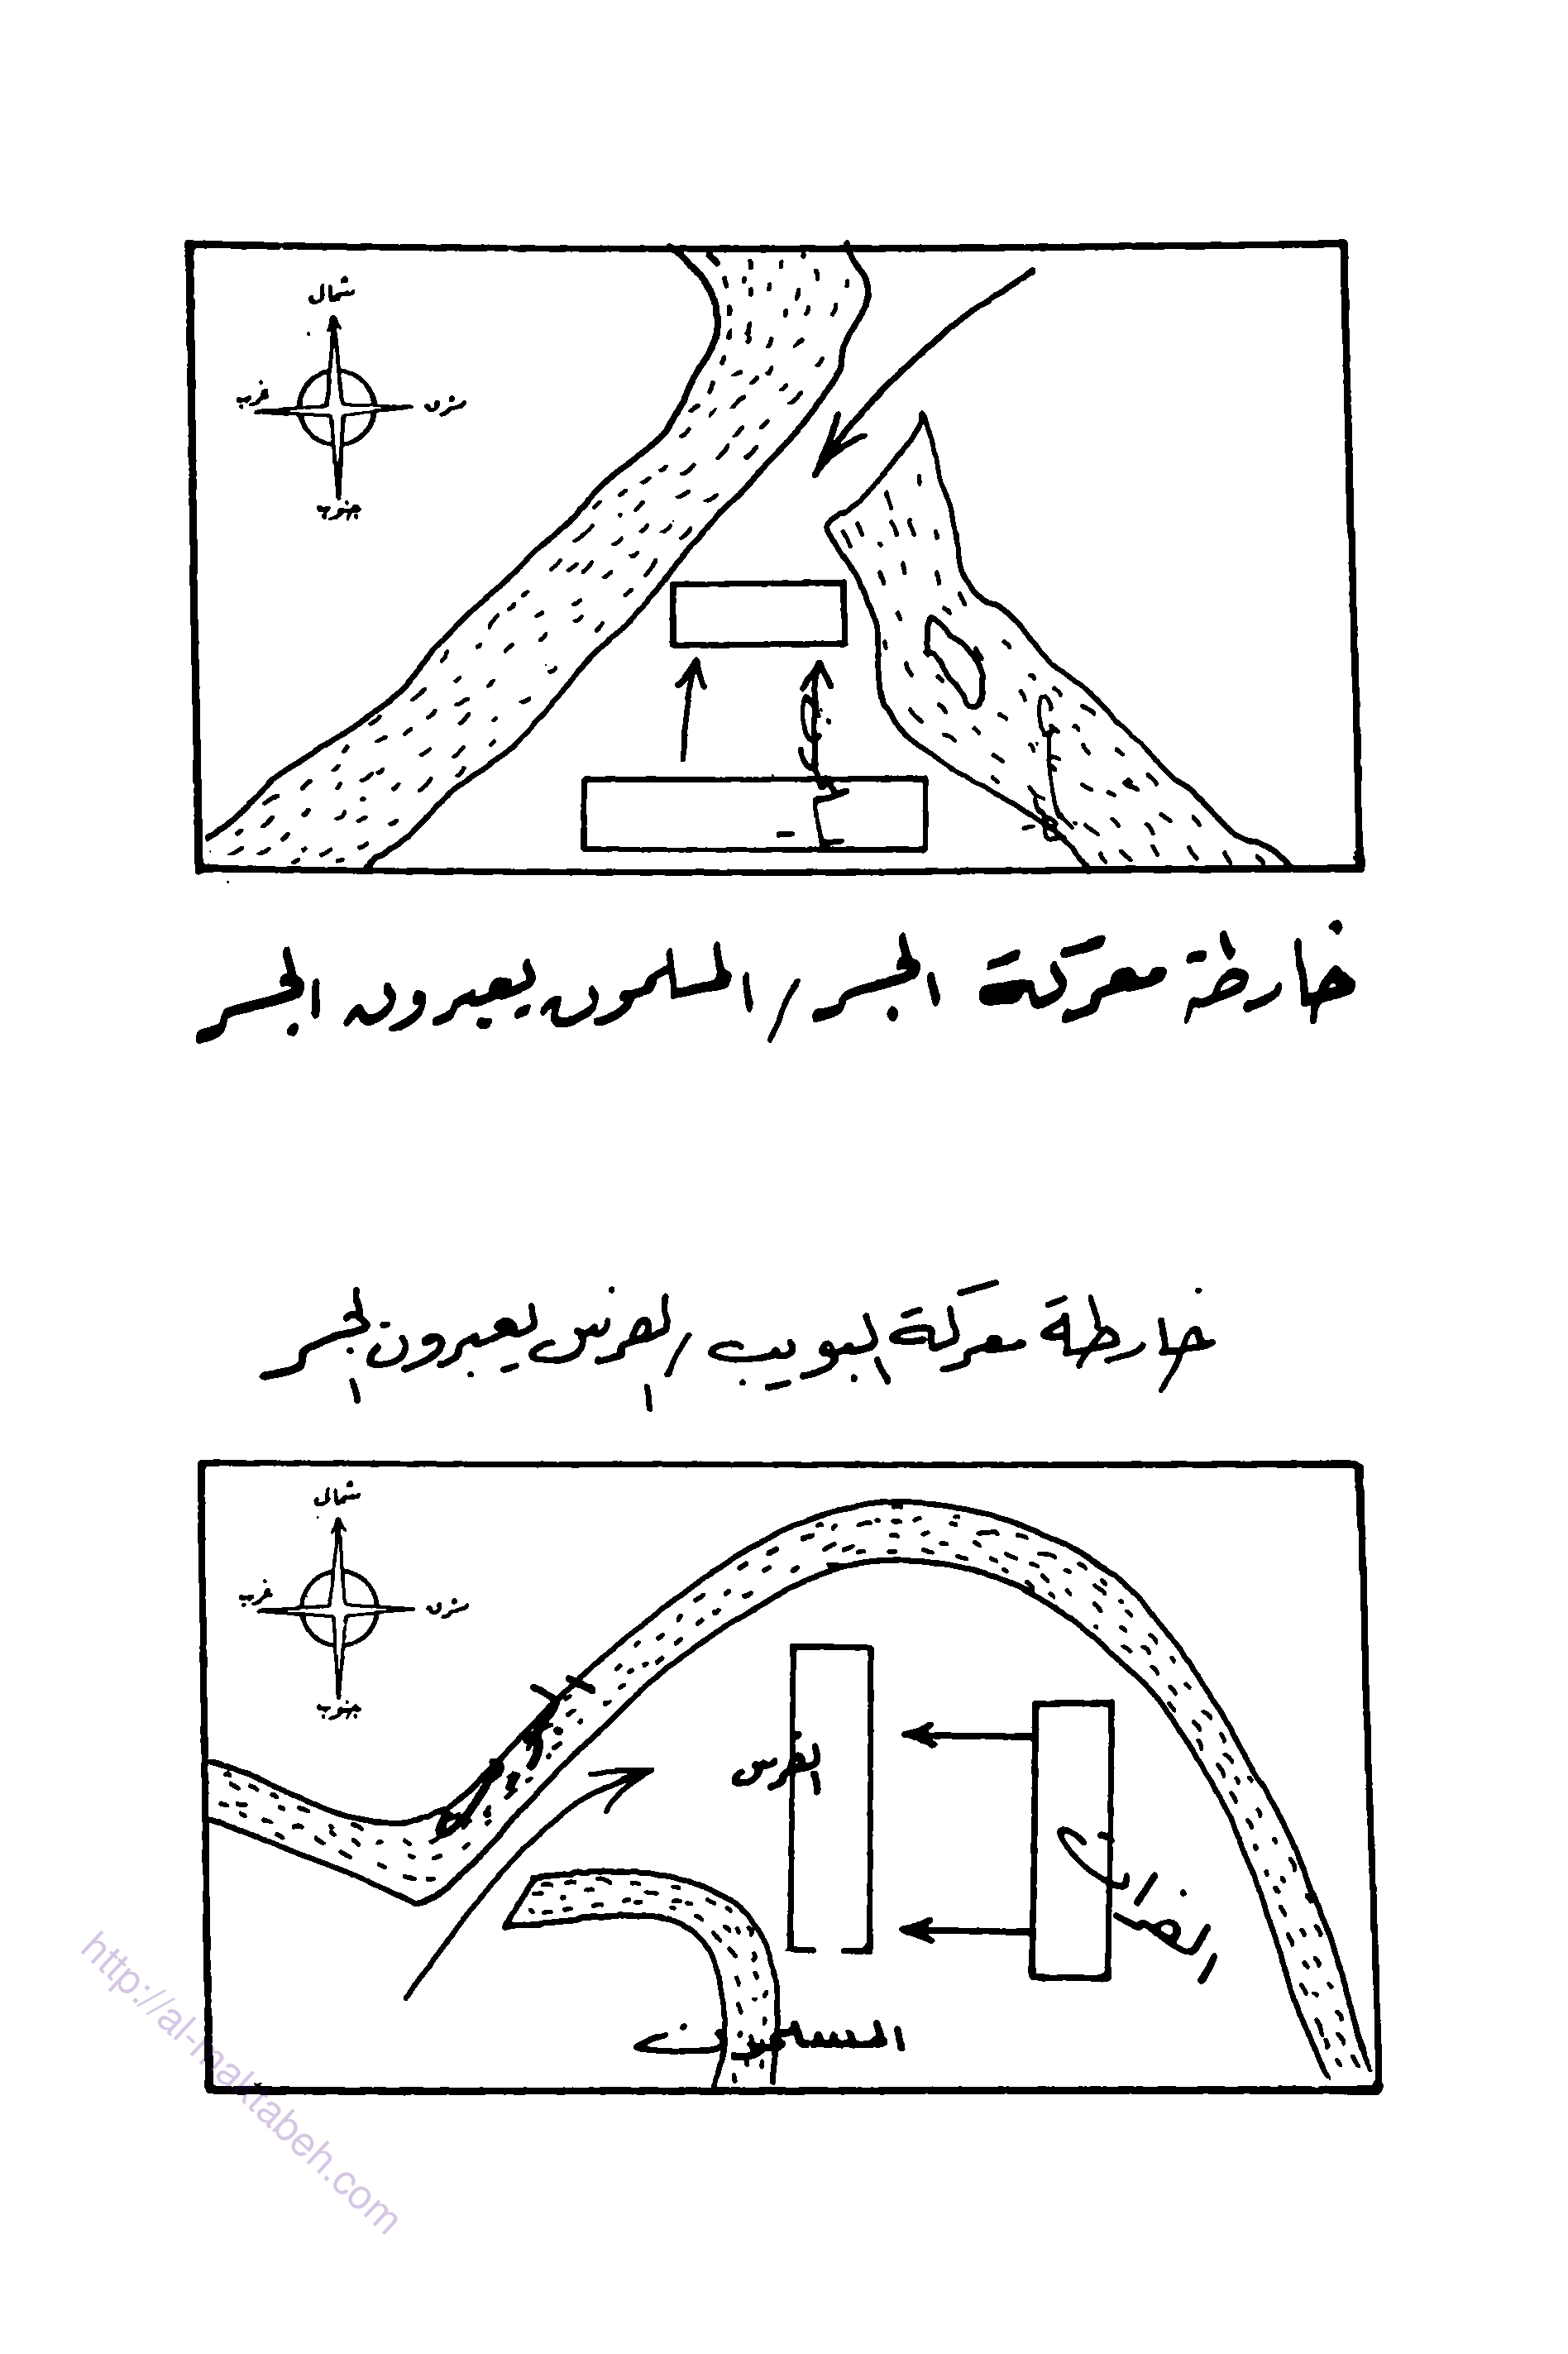 شمال
غرب
شرق
جنوب
خارطة معركة الجسر / المسلمون يعبرون الجسر
خارطة معركة البويب / الفرس يعبرون الجسر
شمال
غرب
شرق
جنوب
الفرس
الفرات
المسلمون
http://al-maktabeh.com